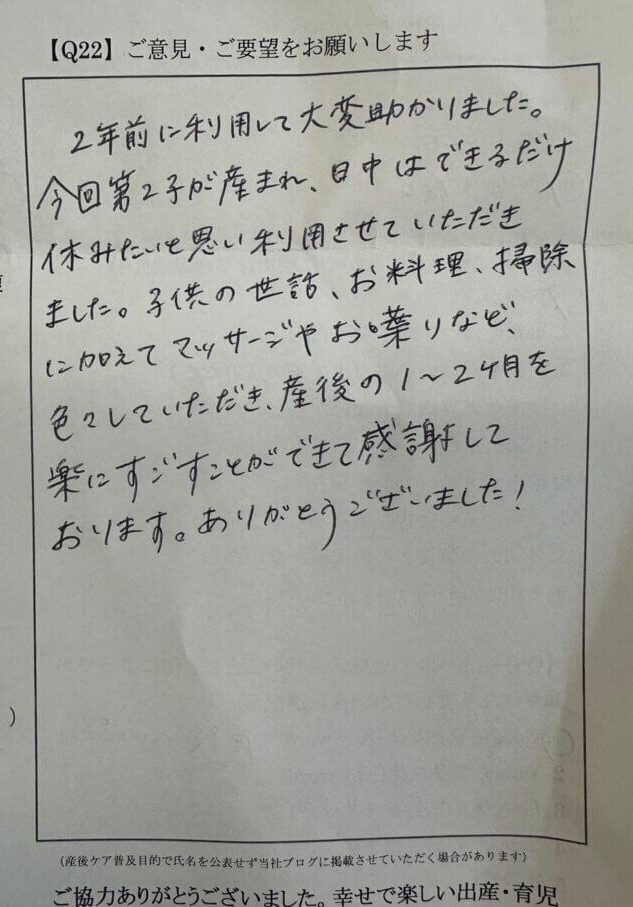 【Q22】ご意見・ご要望をお願いします
2年前に利用して大変助かりました。
今回第2子が産まれ、日中はできるだけ
休みたいと思い利用させていただき
ました。子供の世話、お料理、掃除
に加えてマッサージやお喋りなど、
色々していただき、産後の1〜2ヶ月を
楽にすごすことができて感謝して
おります。ありがとうございました!
)
(産後ケア普及目的で氏名を公表せず当社ブログに掲載させていただく場合があります)
ご協力ありがとうございました。幸せで楽しい出産・育児